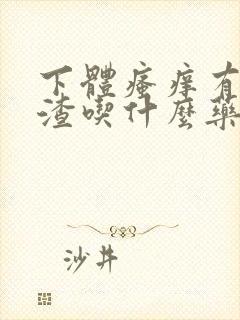 下體瘙痒有
渣喫什麼藥
沙井